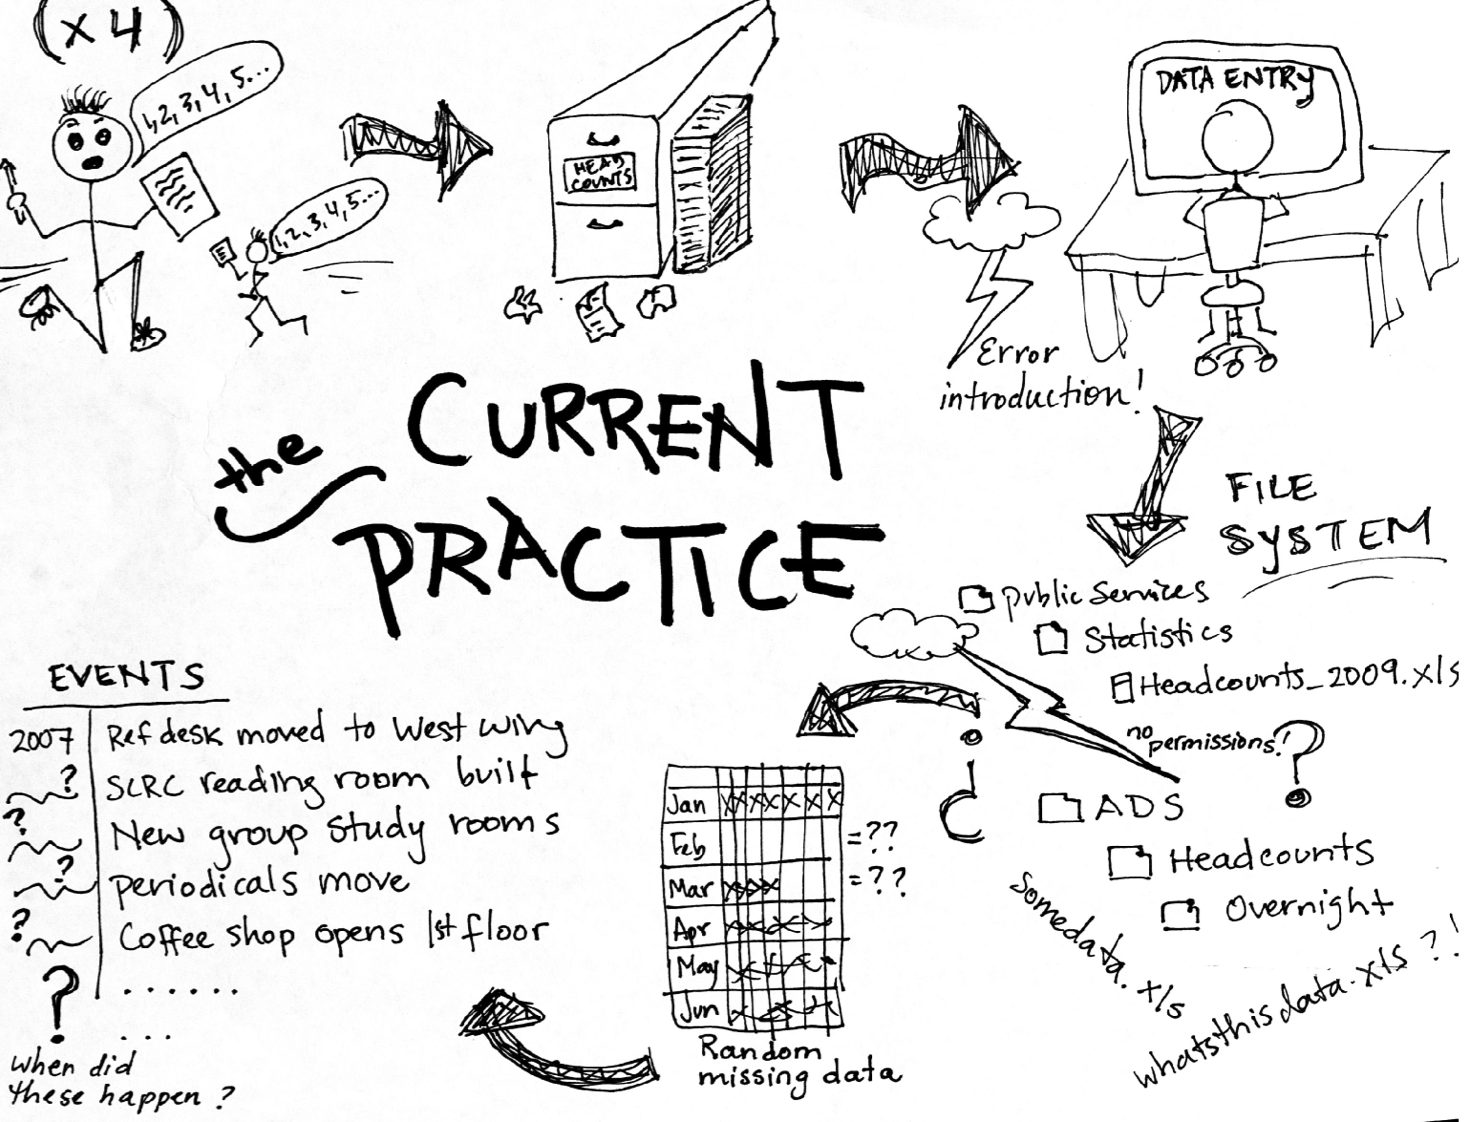 (x4)
1, 2, 3, 4, 5...
1, 2, 3, 4, 5...
HEAD
COUNTS
DATA ENTRY
Error
introduction!
the
CURRENT
PRACTICE
FILE
SYSTEM
public services
Statistics
Headcounts_2009.xls
no permissions!
?
?
ADS
Headcounts
Overnight
somedata.xls
whatsthisdata.xls ?!
Jan xxxxxxx
Feb = ??
Mar xxx = ??
Apr
May
Jun
Random
missing data
EVENTS
2007 Ref desk moved to West wing
? SCRC reading room built
? New group study rooms
? periodicals move
? Coffee shop opens 1st floor
? .......
...
when did
these happen ?